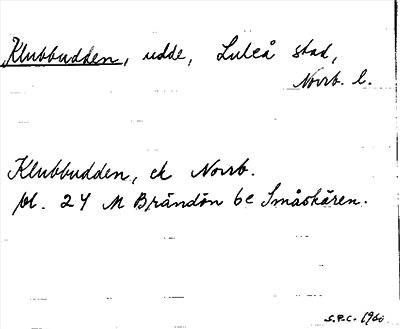 Klubbudden, udde, Luleå stad,
Norrb. l.
Klubbudden, ek Norrb.
bl. 24 M Brändön 6e Småskären.
S.P.C. 1960